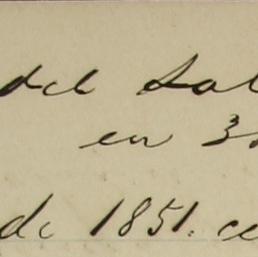 del Sal
en 3
de 1851. ce